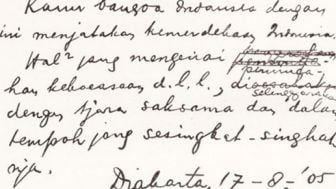 Kami bangsa Indonesia dengan
ini menjatakan kemerdekaan Indonesia.
Hal² jang mengenai
peminda-
han kekoeasaan d.l.l., diselenggarakan
dengan tjara saksama dan dalam
tempoh jang sesingkat-singkat
nja.
Djakarta, 17-8-'05